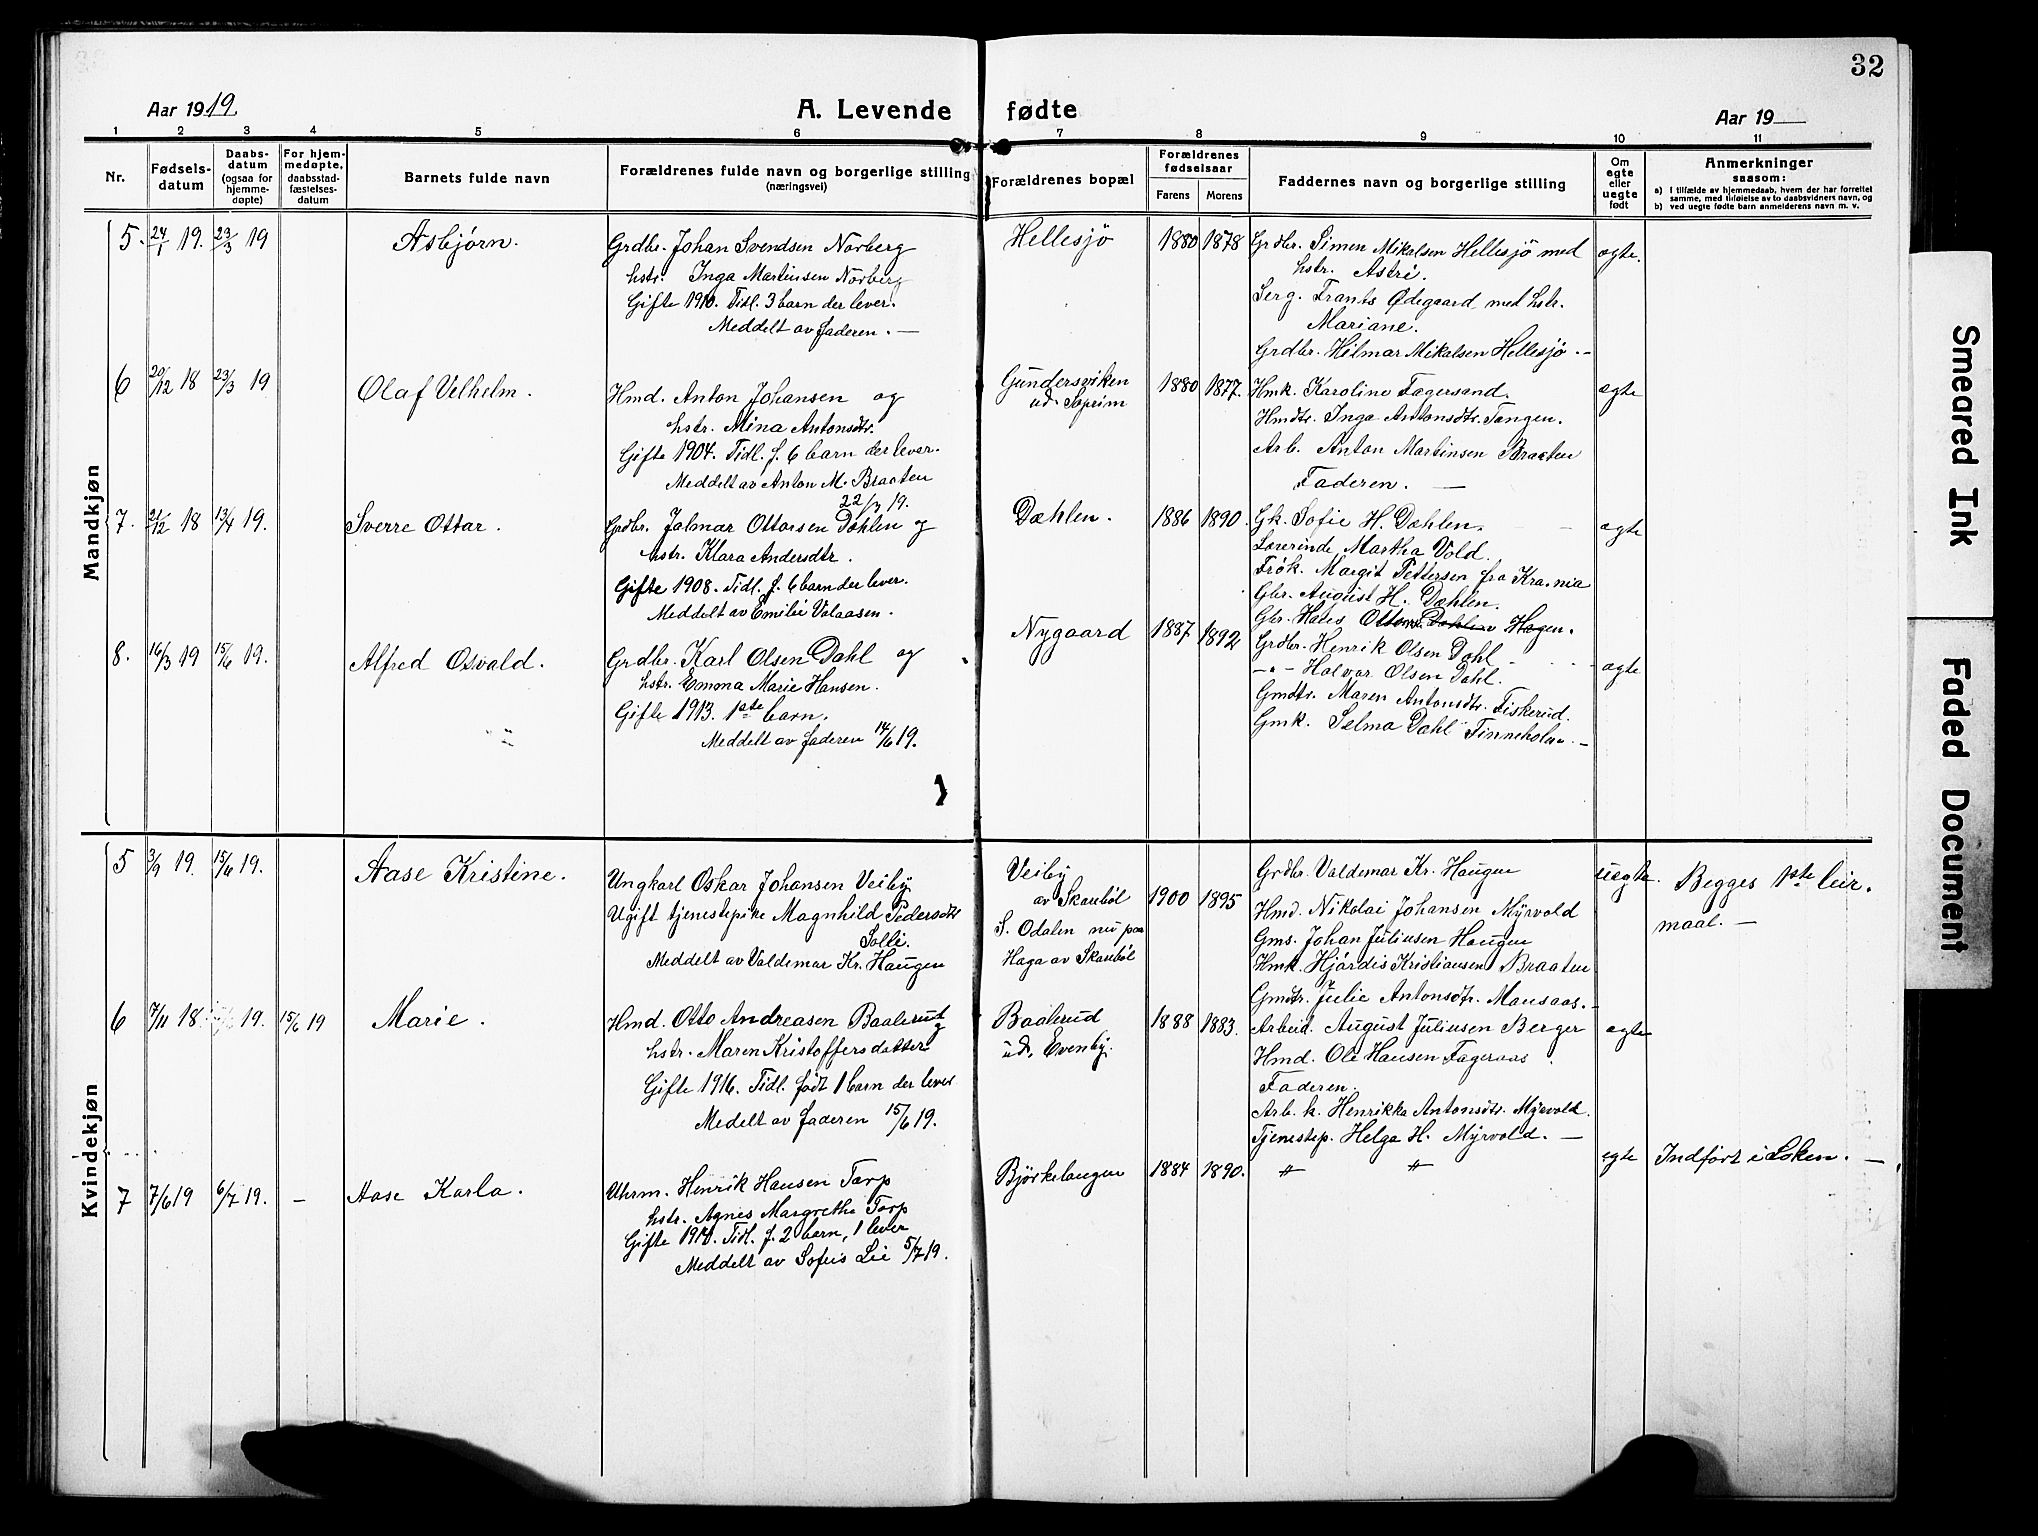 32
Aar 1919.
A. Levende fødte
Aar 19
1 2 3 4 5 6 7 8 9 10 11
Nr.
Fødsels-
datum
Daabs-
datum
(ogsaa for
hjemme-
døpte)
For hjem-
medøpte,
daabsstad-
fæstelses-
datum
Barnets fulde navn
Forældrenes fulde navn og borgerlige stilling
(næringsvei)
Forældrenes bopæl
Forældrenes
fødselsaar
Farens Morens
Faddernes navn og borgerlige stilling
Om
egte
eller
uegte
født
Anmerkninger
saasom:
a) i tilfælde av hjemmedaab, hvem der har forrettet
samme, med tilføielse av to daabsvidners navn, og
b) ved uegte fødte barn anmelderens navn m. v.
Mandkjøn
5. 24/1 19. 23/3 19
Asbjørn.
Grdbr. Johan Svendsen Norberg
hstr. Inga Martinsen Norberg
Gifte 1910. Tidl. 3 barn der lever.
Meddelt av faderen. —
Hellesjö
1880 1878
Grdbr. Simen Mikalsen Hellesjö med
hstr. Astri.
Serg. Frants Ødegaard med hstr.
Mariane.
Grdbr. Hilmar Mikalsen Hellesjö. —
egte.
6 20/12 18 23/3 19
Olaf Velhelm.
Hmd. Anton Johansen og
hstr. Mina Antonsdtr.
Gifte 1904. Tidl. f. 6 barn der lever.
Meddelt av Anton M. Braaten
22/3 19.
Gundersviken
ud. Soprim
1880 1877.
Hmk. Karoline Fagersand.
Hmdtr. Inga Antonsdtr. Tangen.
Arb. Anton Martinsen Braaten
Faderen. —
egte
7. 21/12 18 13/4 19.
Sverre Ottar.
Grdbr. Jalmar Ottersen Dæhlen og
hstr. Klara Andersdtr.
Gifte 1908. Tidl. f. 6 barn der lever.
Meddelt av Emilie Valaasen.
Dæhlen.
1886 1890.
Gk. Sofie H. Dæhlen.
Lærerinde Martha Vold.
Frök. Margit Pettersen fra Kra.nia
Gbr. August H. Dæhlen.
Gbr. Hans Hagen.
egte
8. 16/3 19 15/6 19.
Alfred Osvald.
Grdbr. Karl Olsen Dahl og
hstr. Emma Marie Hansen.
Gifte 1913. 1ste barn.
Meddelt av faderen 14/6 19.
Nygaard
1887 1892
Grdbr. Henrik Olsen Dahl
—"— Halvor Olsen Dahl.
Gmdtr. Maren Antonsdtr. Fiskerud.
Gmk. Selma Dahl Finneholm. —
egte
Kvindekjøn
5 3/9 19. 15/6 19.
Aase Kristine.
Ungkarl Oskar Johansen Veiby
Ugift tjenestepike Magnhild Pedersdtr
Solli.
Meddelt av Valdemar Kr. Haugen
Veiby
av Skarebøl
S. Odalen nu paa
Haga av Skarebøl
1900 1895
Grdbr. Valdemar Kr. Haugen
Hmd. Nikolai Johansen Myrvold
Gms. Johan Juliusen Haugen
Hmk. Hjördis Kristiansen Braaten
Gmdtr. Julie Antonsdtr. Mausaas. —
uegte.
Begges 1ste leir-
maal. —
6 7/11 18. 19. 15/6 19
Marie.
Hmd. Otto Andreasen Baalerud og
hstr. Maren Kristoffersdatter
Gifte 1916. Tidl. født 1 barn der lever
Medelt av faderen 15/6 19.
Baalerud
ud. Evenby.
1888 1883.
Arbeid. August Juliusen Berger
Hmd. Ole Hansen Fageraas.
Faderen.
Arb. k. Henrikka Antonsdtr. Myrvold.
Tjenestep. Helga H. Myrvold. —
egte
7 7/6 19 6/7 19. —
Aase Karla.
Uhrm. Henrik Hansen Torp
hstr. Agnes Margrethe Torp
Gifte 1910. Tidl. f. 2 barn, 1 lever
Meddelt av Sofus Lie 5/7 19.
Björkelangen
1884 1890.
" "
egte
Indfört i Löken. —
Smeared Ink
Faded Document